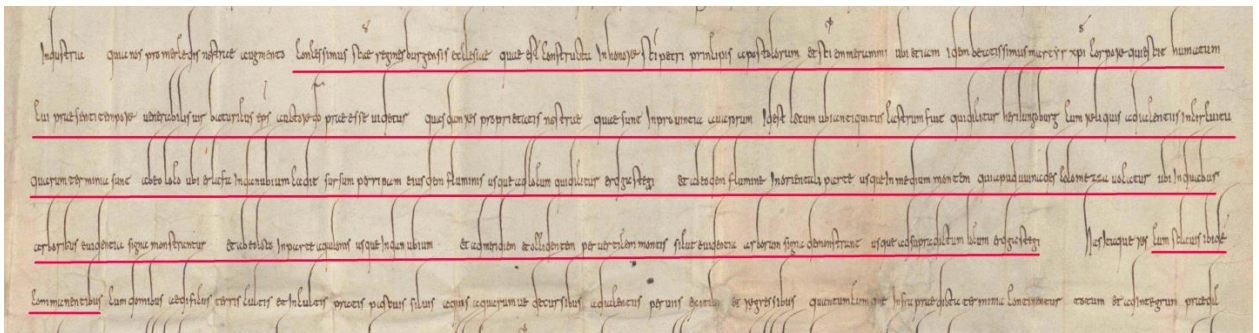 Industria quia nos pro mercedis nostrae augmento concessimus sctae regnesburgensis ecclesiae quae est constructa In honore sci petri principis apostolorum et sci emmerammi ubi etiam idem beatissimus martyr xpi corpore quiescit humatum
cui praesenti tempore venerabilis vir baturicus eps auctore do praeesse videtur quasdam res proprietatis nostrae quae sunt In provintia avarorum Idest locum ubi antiquitus castrum fuit qui dicitur herilungoburg cum reliquis adiacentiis in circuitu
quarum termini sunt ab eo loco ubi erlafa In danubium cadit sursum per ripam eiusdem fluminis usque ad locum qui dicitur erdgastegi et ab eodem flumine In orientali parte usque In medium montem qui apud uuinades colomezza vocatur ubi In quibus
arboribus evidentia signa monstrantur et ab eo loco In parte aquilonis usque In danubium et ad meridiem et occidentem per verticem montis sicut evidentia arborum signa demonstrant usque ad supradictum locum erdgastegi Has itaque res cum sclavis ibidem
commanentibus cum domibus aedificiis terris cultis et Incultis pratis pascuis silvis aquis aquarumve decursibus adiacentiis perviis exitibus et regressibus quantumcumque Infra praedicta termina continentur totum et ad integrum praedic